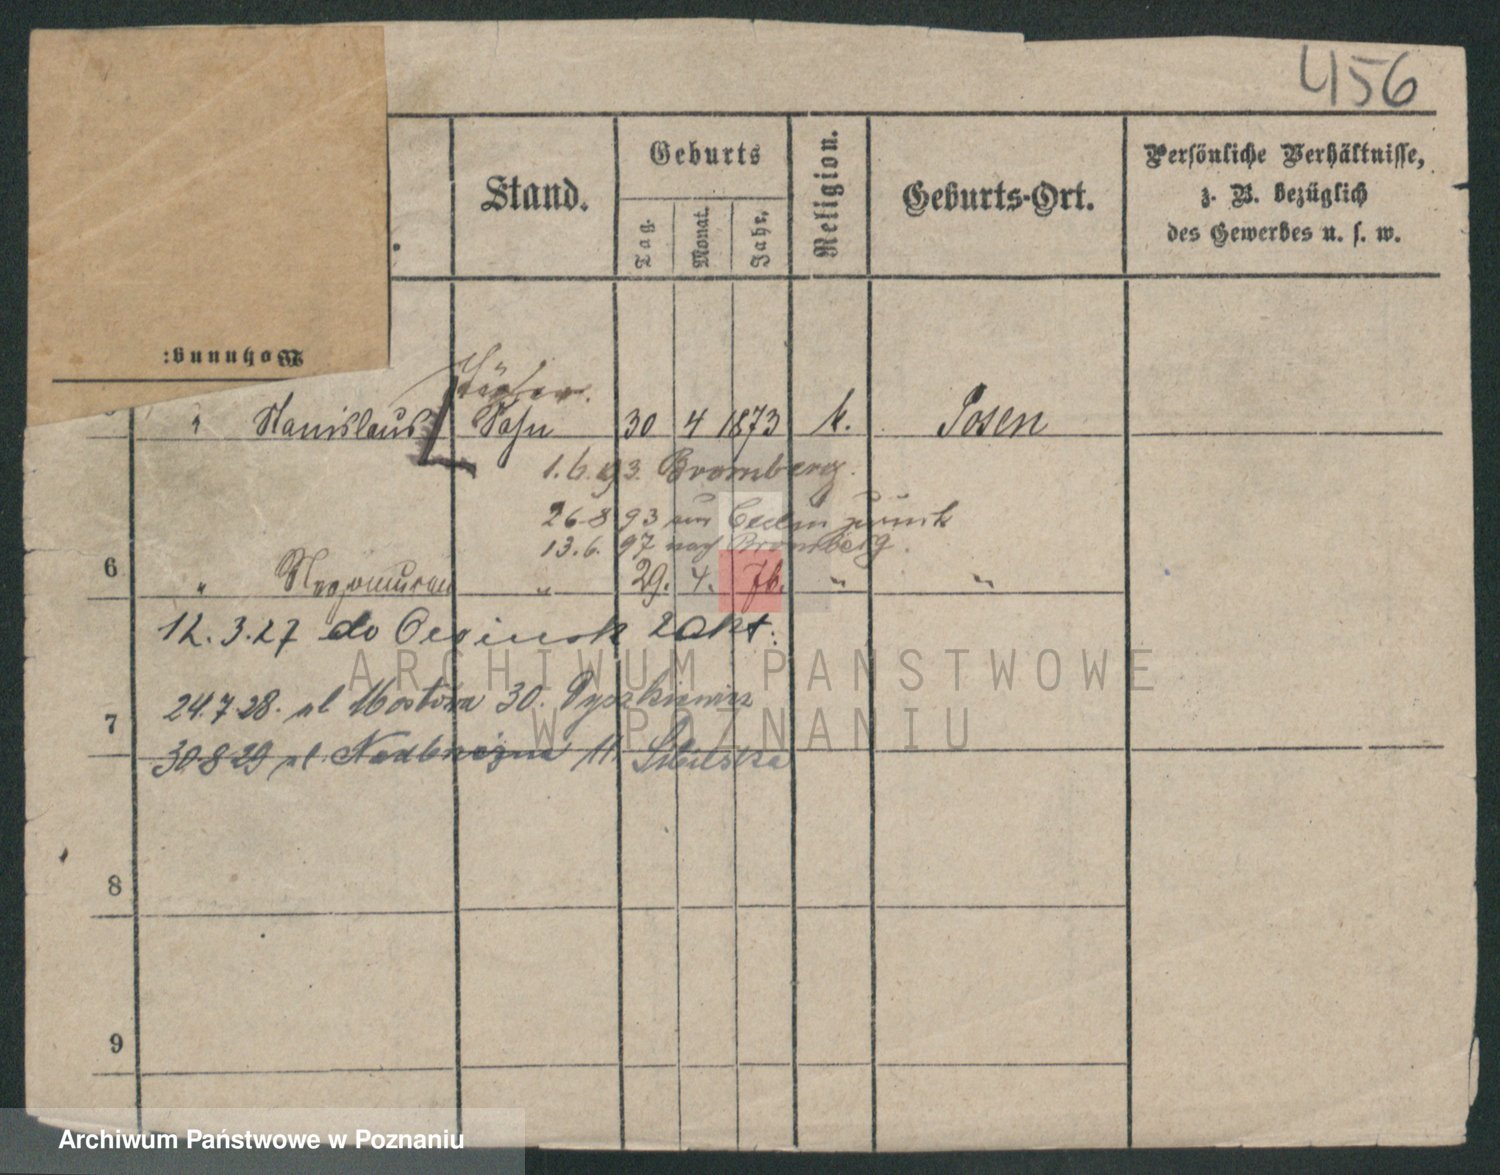 456
Stand.
Geburts
Tag.
Monat.
Jahr.
Religion.
Geburts-Ort.
Persönliche Verhältnisse,
z. B. bezüglich
des Gewerbes u. s. w.
Wohnung:
" Stanislaus Sohn 30 4 1873 k. Posen
1.6.93. Bromberg.
26-8 93 aus zurück
13.6. 97 nach Bromberg.
6
" " 29. 4. 76. " "
12.3.27 do
7
24.7.28. ul Mostowa 30.
30-8-29 ul 11.
8
9
ARCHIWUM PAŃSTWOWE
W POZNANIU
Archiwum Państwowe w Poznaniu